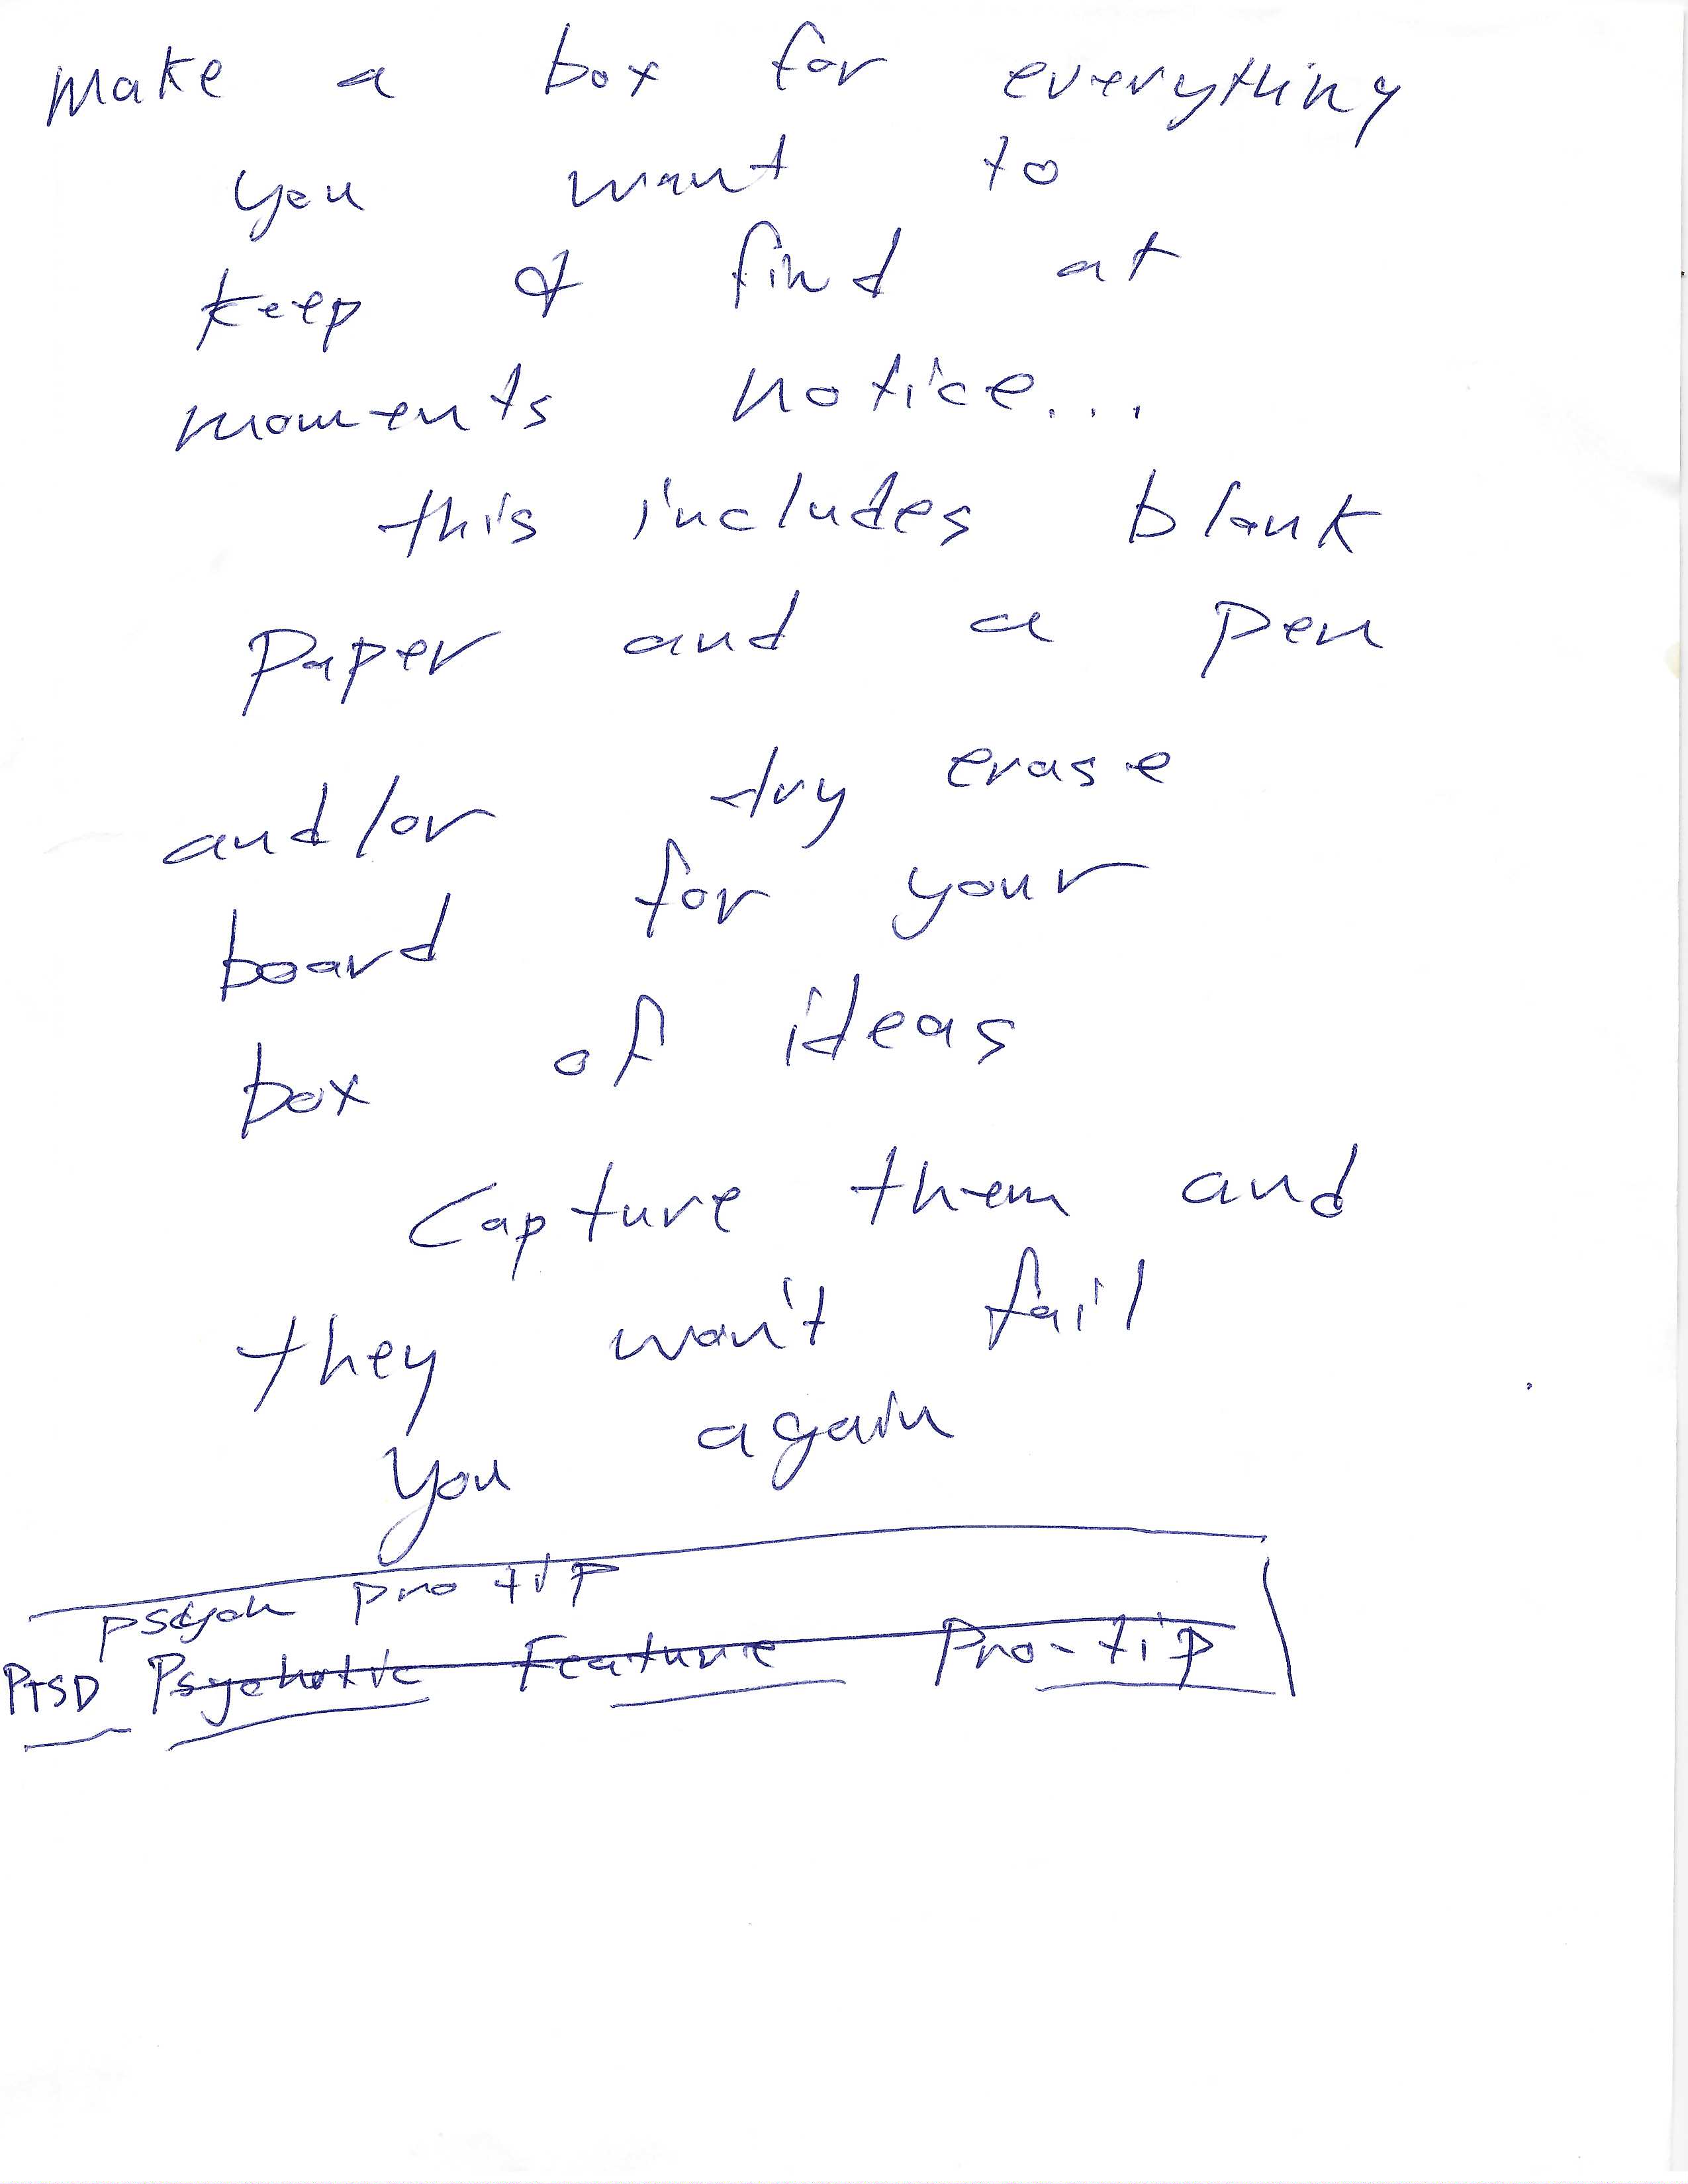 Make a box for everything
you want to
keep & find at
moments notice...
this includes blank
paper and a pen
and/or dry erase
board for your
box of ideas
Capture them and
they won't fail
you again
psych pro tip
PTSD Psychotic Feature Pro-tip